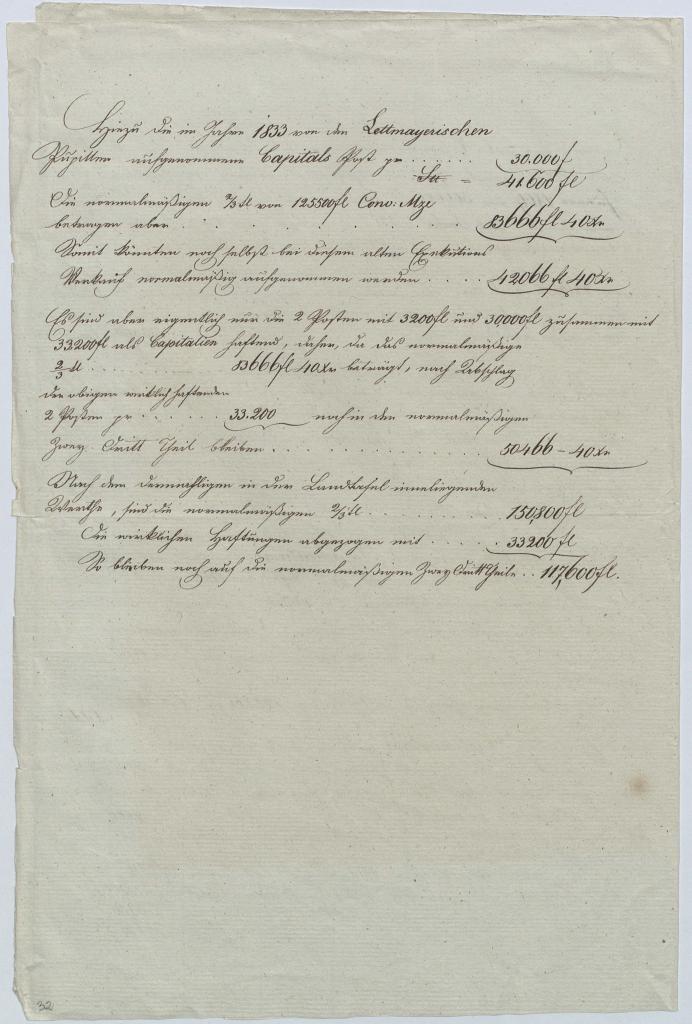 Hiezu die im Jahre 1833 von den Lettmayerischen
Pupillen aufgenommene Capitals Post pr ...... 30.000f
Su = 41.600 fl
Die normalmäßigen 2/3 tl von 125500fl Conv: Mze
betragen aber . . . . . . 83666fl 40xr
Somit könnten noch selbst bei diesem alten Exekutions
Verkauf normalmäßig aufgenommen werden . . . 42066fl 40xr
Es sind aber eigentlich nur die 2 Posten mit 3200fl und 30,000fl zusammen mit
33,200fl als Capitalien haftend, daher, da das normalmäßige
2/3 tl . . . . . . 83666fl 40xr beträgt, nach Abschlag
der obigen wirklich haftenden
2 Posten pr . . . . . 33.200 noch in den normalmäßigen
Zwey Dritt Theil bleiben . . . . . . . . . . 50466 – 40xr
Nach dem dermahligen in der Landtafel inneliegenden
Werthe, sind die normalmäßigen 2/3 tl . . . . . . 150,800fl
Die wirklichen Haftungen abgezogen mit . . . . . 33200 fl
So bleiben noch auf die normalmäßigen Zwey Dritt Theile . . 117,600fl.
32